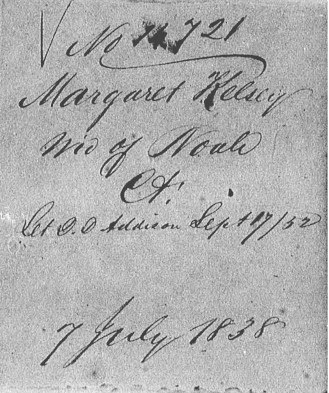 No 721
Margaret Kelsey
wid of Noah
Ct.
Let D. D Addison Sept 17/52
7 July 1838